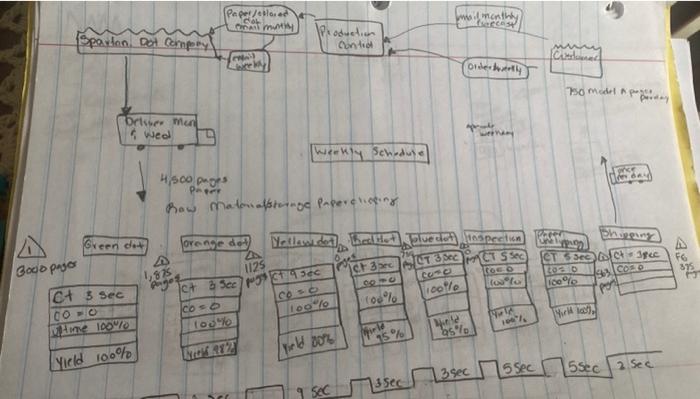 Paper/colored
dot
email monthly
mail monthly
forecast
Spartan Dot Company
Production
Control
Customer
email
weekly
Order weekly
750 Model A pages
per day
Deliver Mon
& Wed
Weekly Schedule
once
per day
4,500 pages
Paper
Raw Material/storage Paperclipping
Green dot
Orange dot
Yellow dot
Red dot
blue dot
Inspection
Paper
unclipping
Shipping
3000 pages
1,875
pages
1125
pages
CT 3 Sec
CO = 0
uptime 100%
Yield 100%
CT 3 Sec
CO = 0
100%
Yield 98%
CT 9 Sec
CO = 0
100%
Yield 80%
CT 3 Sec
CO = 0
100%
Yield
95%
CT 3 Sec
CO = 0
100%
Yield
95%
CT 5 Sec
CO = 0
100%
Yield
100%
CT 5 Sec
CO = 0
100%
Yield 100%
CO = 0
FG
375
pages
9 Sec
3 Sec
3 Sec
5 Sec
5 Sec